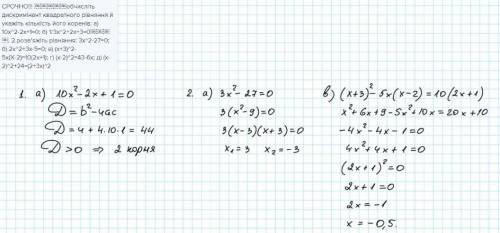 СРОЧНО!! обчисліть
дискримінант квадратного рівняння й
укажіть кількість його коренів: а)
10x^2-2x+1=0; б) 1\3x^2+2x+3=0
2.розв'яжіть рівняння: 3x^2-27=0;
б) 2x^2+3x-5=0; в) (x+3)^2-
5x(X-2)=10(2x+1); г) (x-2)^2=43-6x; д) (x-
2)^2+24=(2+3x)^2
1. а) 10x² - 2x + 1 = 0
D = b² - 4ac
D = 4 + 4·10·1 = 44
D > 0 ⇒ 2 корня
2. а) 3x² - 27 = 0
3(x² - 9) = 0
3(x - 3)(x + 3) = 0
x₁ = 3 x₂ = -3
в) (x+3)² - 5x(x-2) = 10(2x+1)
x² + 6x + 9 - 5x² + 10x = 20x + 10
-4x² - 4x - 1 = 0
4x² + 4x + 1 = 0
(2x + 1)² = 0
2x + 1 = 0
2x = -1
x = -0,5.